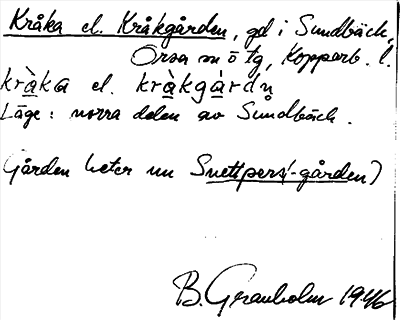 Kråka el. Kråkgården, gd i Sundbäck,
Orsa sn ö tg, Kopparb. l.
krà̱ka el. krà̱kgà̱rdn̥
Läge: norra delen av Sundbäck.
(Gården heter nu Snettpers'-gården)
B. Granholm 1946